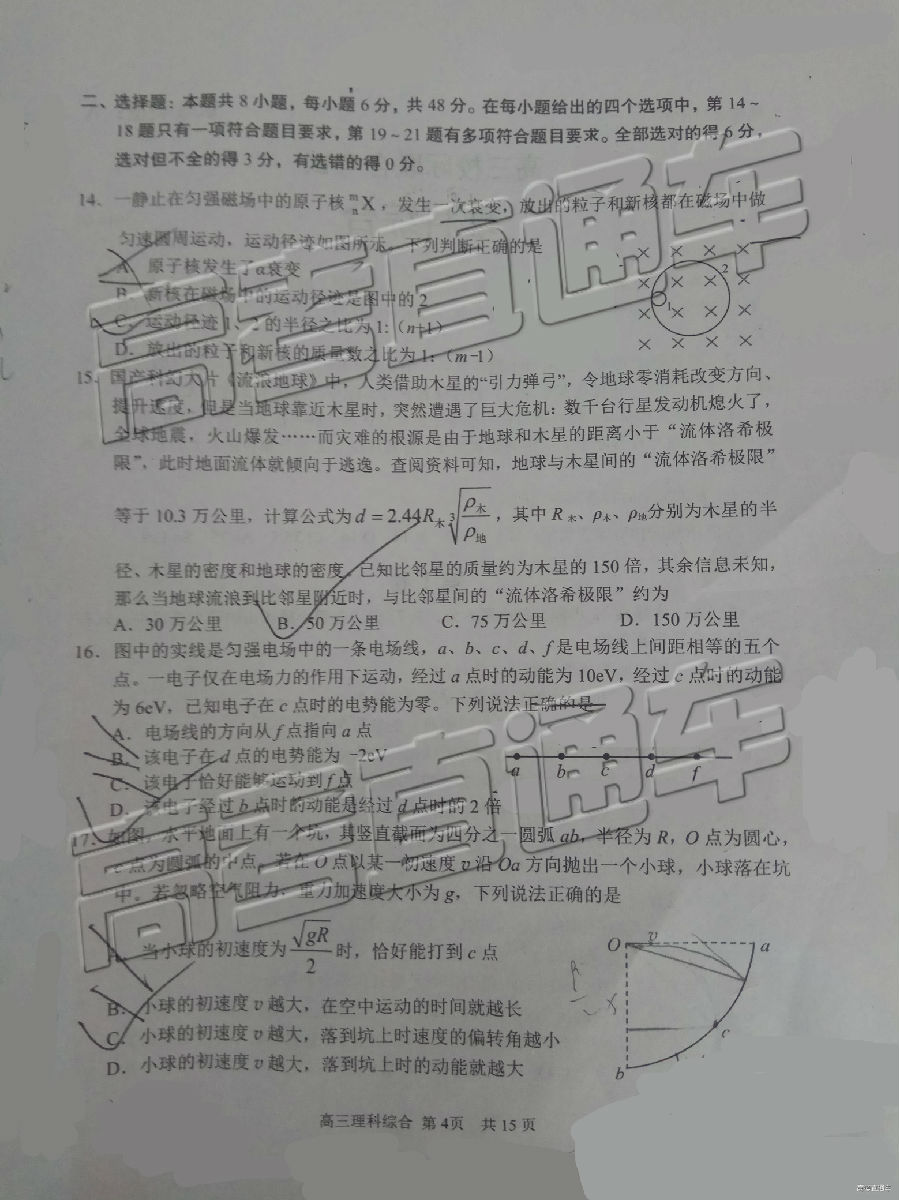 二、选择题：本题共8小题，每小题6分，共48分。在每小题给出的四个选项中，第14～
18题只有一项符合题目要求，第19～21题有多项符合题目要求。全部选对的得6分，
选对但不全的得3分，有选错的得0分。
14．一静止在匀强磁场中的原子核 ᵐₙX ，发生一次衰变，放出的粒子和新核都在磁场中做
匀速圆周运动，运动径迹如图所示。下列判断正确的是
A．原子核发生了α衰变
B．新核在磁场中的运动径迹是图中的2
C．运动径迹1、2的半径之比为1:（n+1）
D．放出的粒子和新核的质量数之比为1:（m−1）
1
2
15．国产科幻大片《流浪地球》中，人类借助木星的“引力弹弓”，令地球零消耗改变方向、
提升速度，但是当地球靠近木星时，突然遭遇了巨大危机：数千台行星发动机熄火了，
全球地震，火山爆发……而灾难的根源是由于地球和木星的距离小于“流体洛希极
限”，此时地面流体就倾向于逃逸。查阅资料可知，地球与木星间的“流体洛希极限”
等于10.3万公里，计算公式为 d = 2.44R木 ∛(ρ木/ρ地) ，其中R木、ρ木、ρ地分别为木星的半
径、木星的密度和地球的密度。已知比邻星的质量约为木星的150倍，其余信息未知，
那么当地球流浪到比邻星附近时，与比邻星间的“流体洛希极限”约为
A．30万公里 B．50万公里 C．75万公里 D．150万公里
16．图中的实线是匀强电场中的一条电场线，a、b、c、d、f是电场线上间距相等的五个
点。一电子仅在电场力的作用下运动，经过a点时的动能为10eV，经过c点时的动能
为6eV，已知电子在c点时的电势能为零。下列说法正确的是
A．电场线的方向从f点指向a点
B．该电子在d点的电势能为−2eV
C．该电子恰好能够运动到f点
D．该电子经过b点时的动能是经过d点时的2倍
a b c d f
17．如图，水平地面上有一个坑，其竖直截面为四分之一圆弧ab，半径为R，O点为圆心，
c点为圆弧的中点。若在O点以某一初速度v沿Oa方向抛出一个小球，小球落在坑
中。若忽略空气阻力，重力加速度大小为g，下列说法正确的是
A．当小球的初速度为 √gR/2 时，恰好能打到c点
B．小球的初速度v越大，在空中运动的时间就越长
C．小球的初速度v越大，落到坑上时速度的偏转角越小
D．小球的初速度v越大，落到坑上时的动能就越大
O v a
c
b
高三理科综合 第4页 共15页
高考直通车
高考直通车